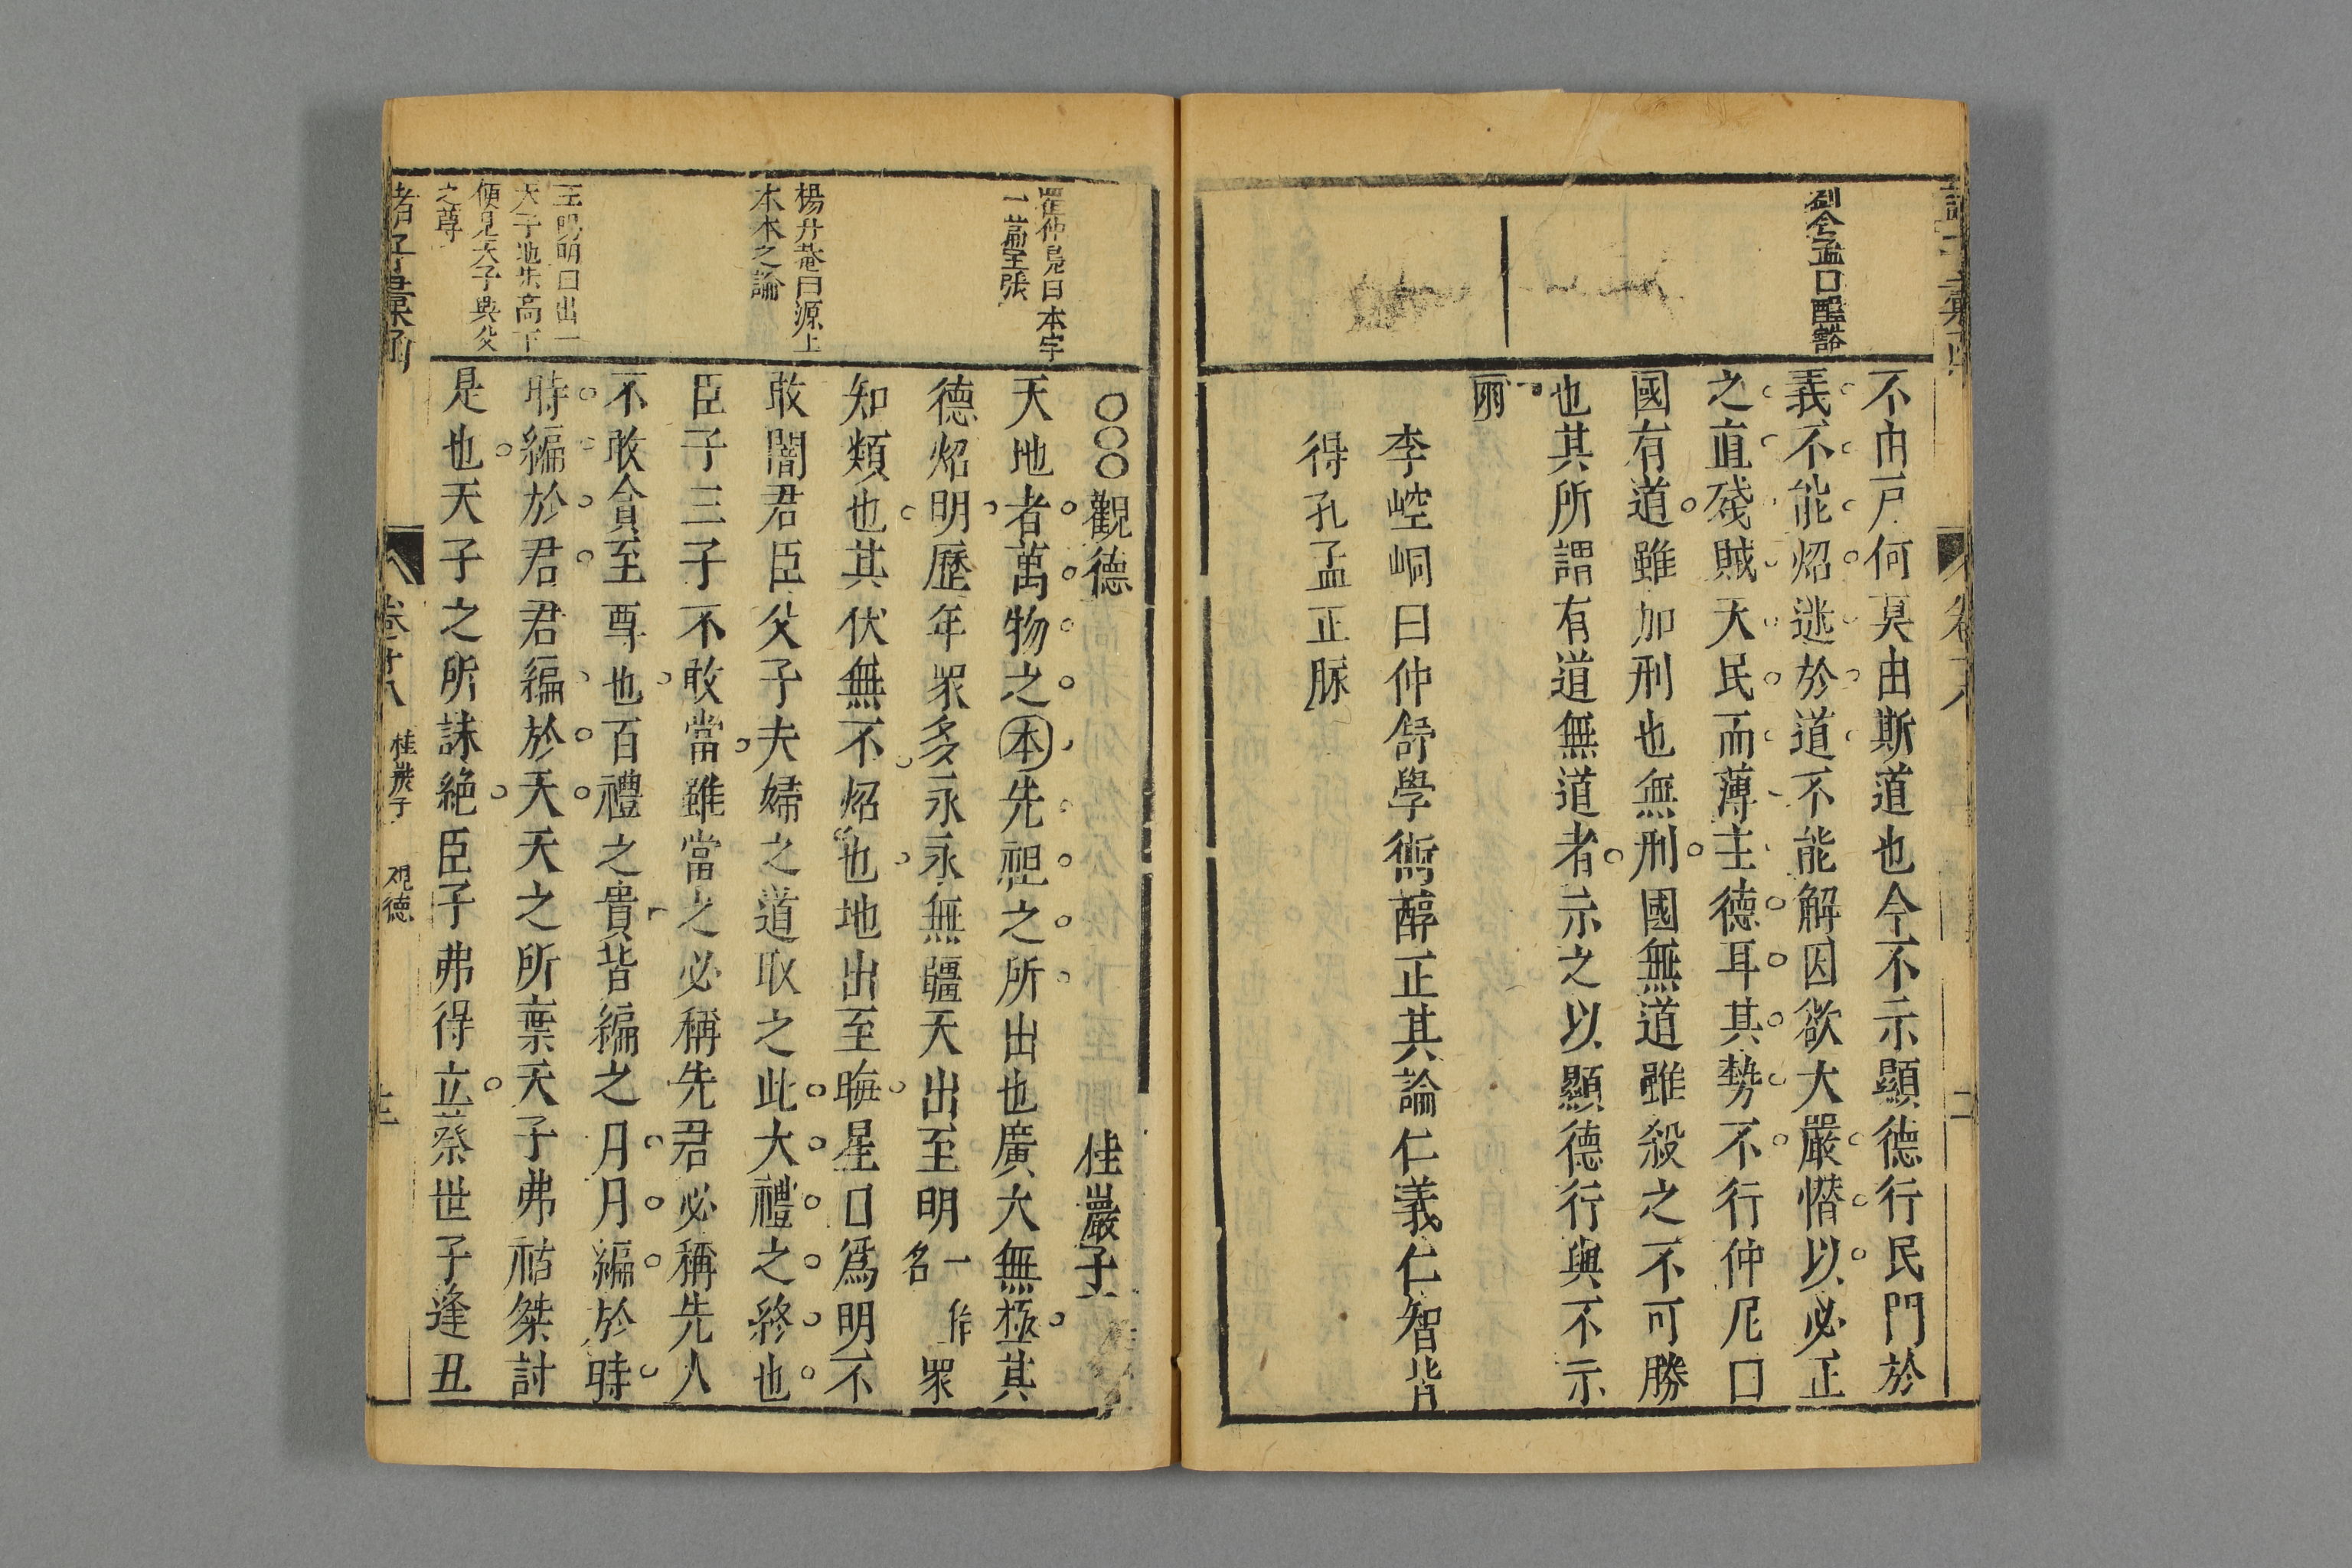 劉含孟曰醒豁
不由戶何莫由斯道也今不示顯德行民門於
義不能炤逃於道不能解因欲大嚴憯以必正
之直殘賊天民而薄主德耳其勢不行仲尼曰
國有道雖加刑也無刑國無道雖殺之不可勝
也其所謂有道無道者示之以顯德行與不示
爾
李崆峒曰仲舒學術醇正其論仁義仁智背
得孔孟正脉
崔仲鳧曰本字
一篇主張
楊升菴曰源上
木本之論
王陽明曰出一
天子地步高下
傾見天子與父
之尊
○○○觀德
桂巖子
天地者萬物之本先祖之所出也廣大無極其
德炤明歷年眾多永永無疆天出至明一作名眾
知類也其伏無不炤也地出至晦星日爲明不
敢闇君臣父子夫婦之道取之此大禮之終也
臣子三子不敢當雖當之必稱先君必稱先人
不敢貪至尊也百禮之貴皆編之月月編於時
時編於君君編於天天之所棄天子弗祐桀討
是也天子之所誅絕臣子弗得立蔡世子逢丑
諸子彙函
卷廿八
桂巖子
觀德